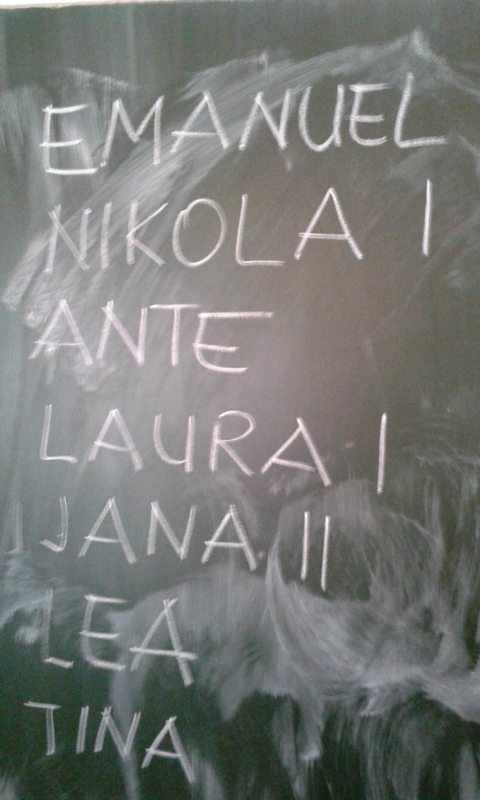 EMANUEL
NIKOLA I
ANTE
LAURA I
JANA II
LEA
TINA